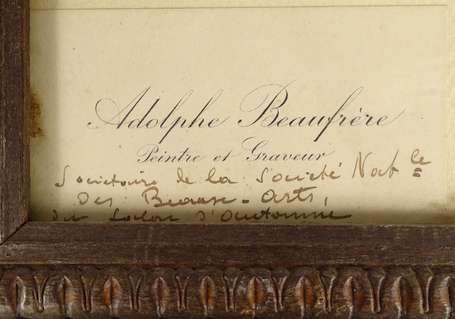 Adolphe Beaufrère
Peintre et Graveur
Sociétaire de la Société Nat le
Des Beaux-Arts,
du Salon d'Automne